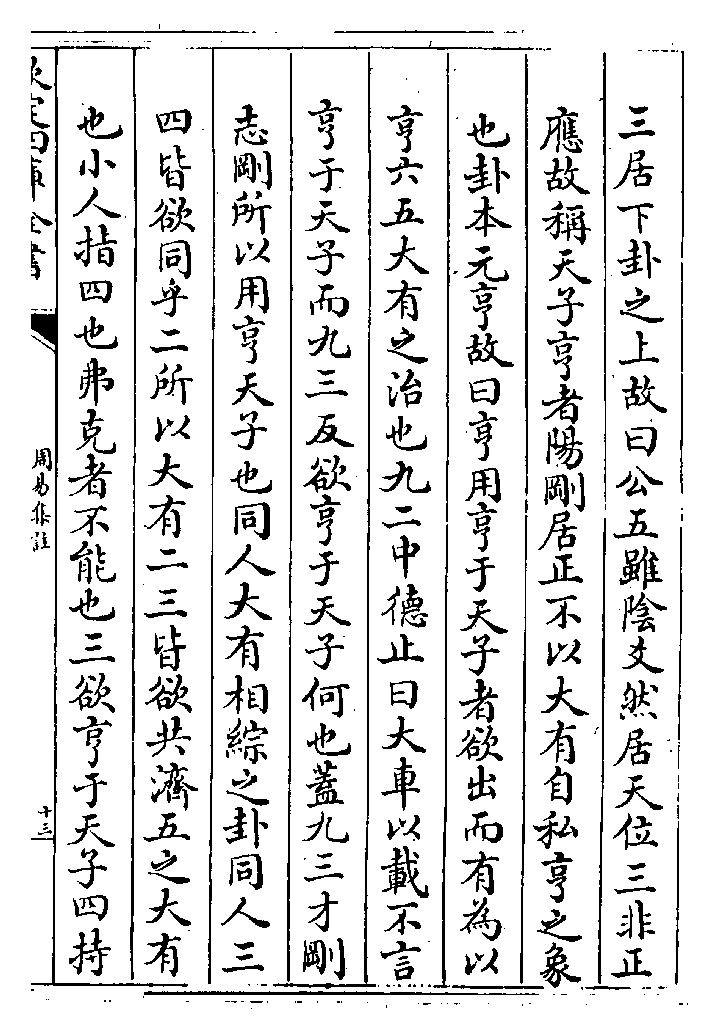 三居下卦之上故曰公五雖陰爻然居天位三非正
應故稱天子亨者陽剛居正不以大有自私亨之象
也卦本元亨故曰亨用亨于天子者欲出而有為以
亨六五大有之治也九二中德止曰大車以載不言
亨于天子而九三反欲亨于天子何也蓋九三才剛
志剛所以用亨天子也同人大有相綜之卦同人三
四皆欲同乎二所以大有二三皆欲共濟五之大有
也小人指四也弗克者不能也三欲亨于天子四持
欽定四庫全書
周易集註
十三